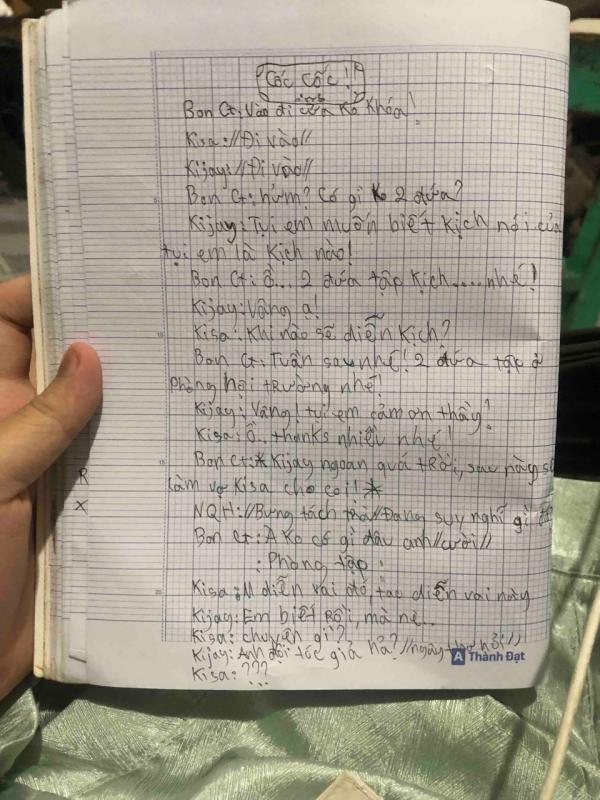 Cốc Cốc!!
Bon Ct: Vào đi cửa ko khóa!
Kisa://Đi vào//
Kijay://Đi vào//
Bon Ct: hửm? Có gì ko 2 đứa?
Kijay: Tụi em muốn biết kịch nói của
tụi em là kịch nào!
Bon Ct: ồ... 2 đứa tập kịch.....nhé!
Kijay: Vâng ạ!
Kisa: Khi nào sẽ diễn kịch?
Bon Ct: Tuần sau nhé! 2 đứa tập ở
phòng hội trường nhé!
Kijay: Vâng! tụi em cảm ơn thầy!
Kisa: Ồ.. thanks nhiều nhé!
Bon Ct:*Kijay ngoan quá trời, sau này sẽ
làm vợ Kisa cho coi!*
NQH://Bưng tách trà//Đang suy nghĩ gì
Bon Ct: À ko có gì đâu anh//cười//
: Phòng tập :
Kisa: M diễn vai đó, tao diễn vai này
Kijay: Em biết rồi, mà nè..
Kisa: chuyện gì?
Kijay: Anh đội tóc giả hả?//ngây thơ hỏi//
Kisa: ???
A Thành Đạt
R
X